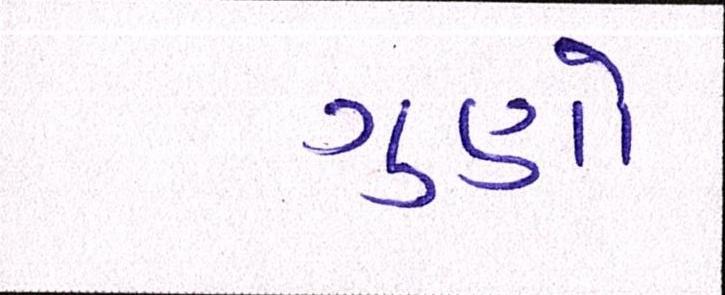 ગુણો